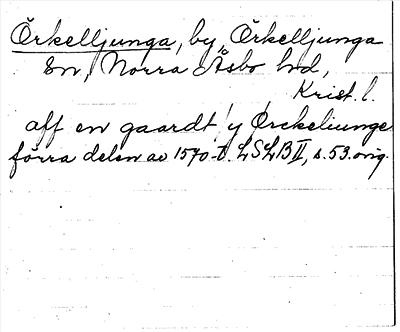 Örkelljunga, by, Örkelljunga
sn, Norra Åsbo hd,
Krist. l.
aff en gaardt y Ørckeliunge
förra delen av 1570-t. LSLB II, s. 53. orig.